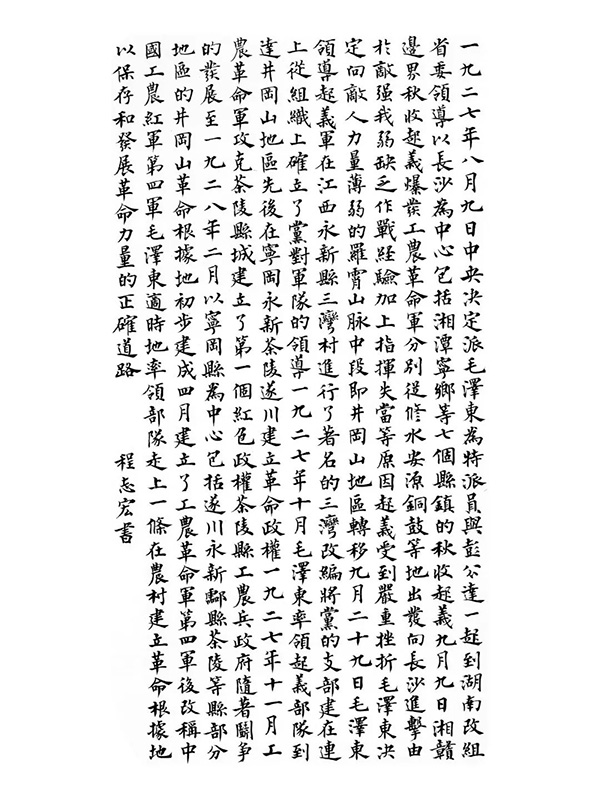 一九二七年八月九日中央決定派毛澤東為特派員與彭公達一起到湖南改組
省委領導以長沙為中心包括湘潭寧鄉等七個縣鎮的秋收起義九月九日湘贛
邊界秋收起義爆發工農革命軍分別從修水安源銅鼓等地出發向長沙進擊由
於敵强我弱缺乏作戰經驗加上指揮失當等原因起義受到嚴重挫折毛澤東決
定向敵人力量薄弱的羅霄山脉中段即井岡山地區轉移九月二十九日毛澤東
領導起義軍在江西永新縣三灣村進行了著名的三灣改編將黨的支部建在連
上從組織上確立了黨對軍隊的領導一九二七年十月毛澤東率領起義部隊到
達井岡山地區先後在寧岡永新茶陵遂川建立革命政權一九二七年十一月工
農革命軍攻克茶陵縣城建立了第一個紅色政權茶陵縣工農兵政府隨著鬭争
的發展至一九二八年二月以寧岡縣為中心包括遂川永新酃縣茶陵等縣部分
地區的井岡山革命根據地初步建成四月建立了工農革命軍第四軍後改稱中
國工農紅軍第四軍毛澤東適時地率領部隊走上一條在農村建立革命根據地
以保存和發展革命力量的正確道路 程志宏書